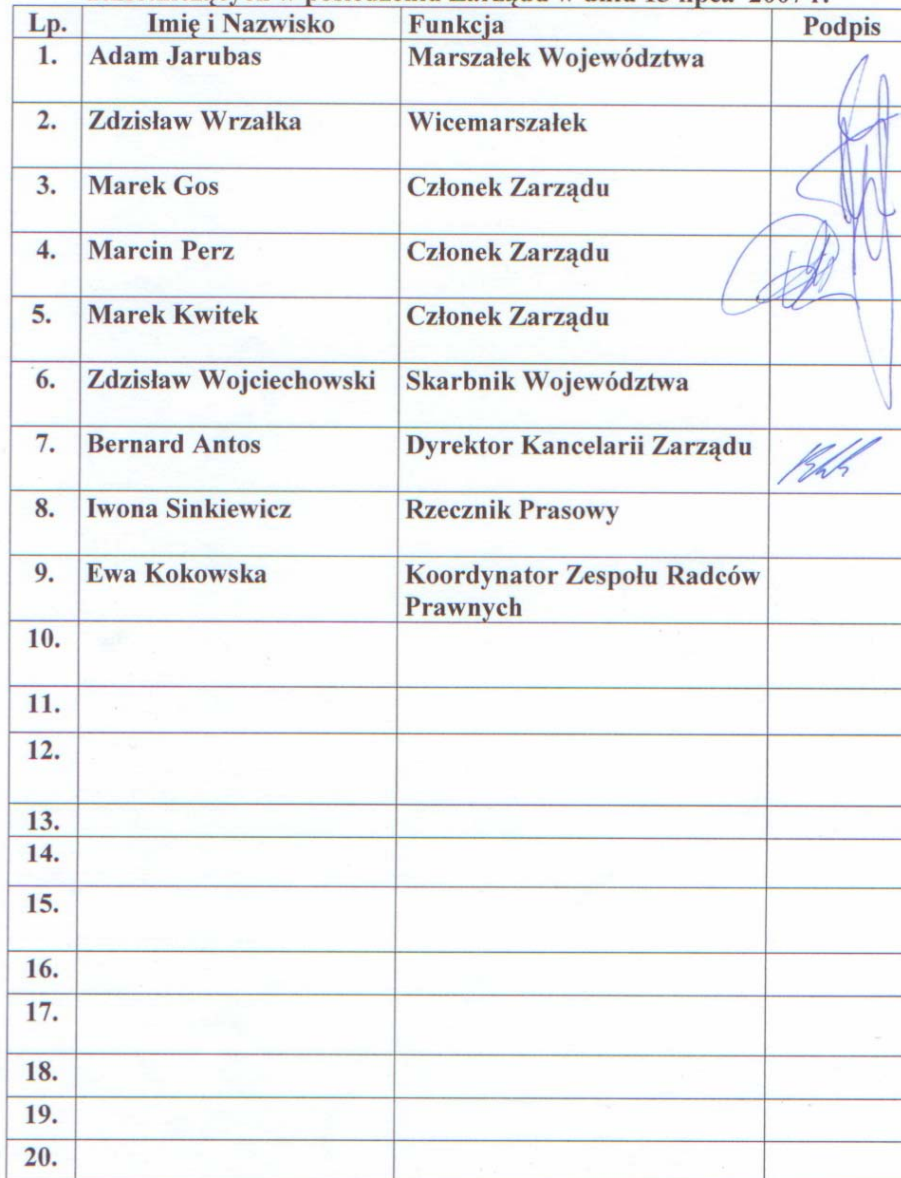 w posiedzeniu Zarządu w dniu 13 lipca 2007 r.
Lp. Imię i Nazwisko Funkcja Podpis
1. Adam Jarubas Marszałek Województwa
2. Zdzisław Wrzałka Wicemarszałek
3. Marek Gos Członek Zarządu
4. Marcin Perz Członek Zarządu
5. Marek Kwitek Członek Zarządu
6. Zdzisław Wojciechowski Skarbnik Województwa
7. Bernard Antos Dyrektor Kancelarii Zarządu
8. Iwona Sinkiewicz Rzecznik Prasowy
9. Ewa Kokowska Koordynator Zespołu Radców
Prawnych
10.
11.
12.
13.
14.
15.
16.
17.
18.
19.
20.